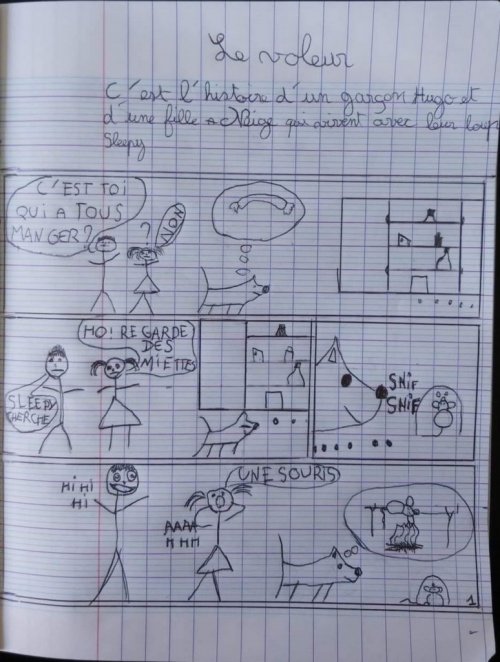 Le voleur
C'est l'histoire d'un garçon Hugo et
d'une fille Neige qui vivent avec leur loup
Sleepy
C'EST TOI
QUI A TOUS
MANGER?
?
NON
HOI REGARDE
DES
MIETTES
SLEEPY
CHERCHE
SNIF
SNIF
HI HI
HI
UNE SOURIS
AAAA
HHH
1